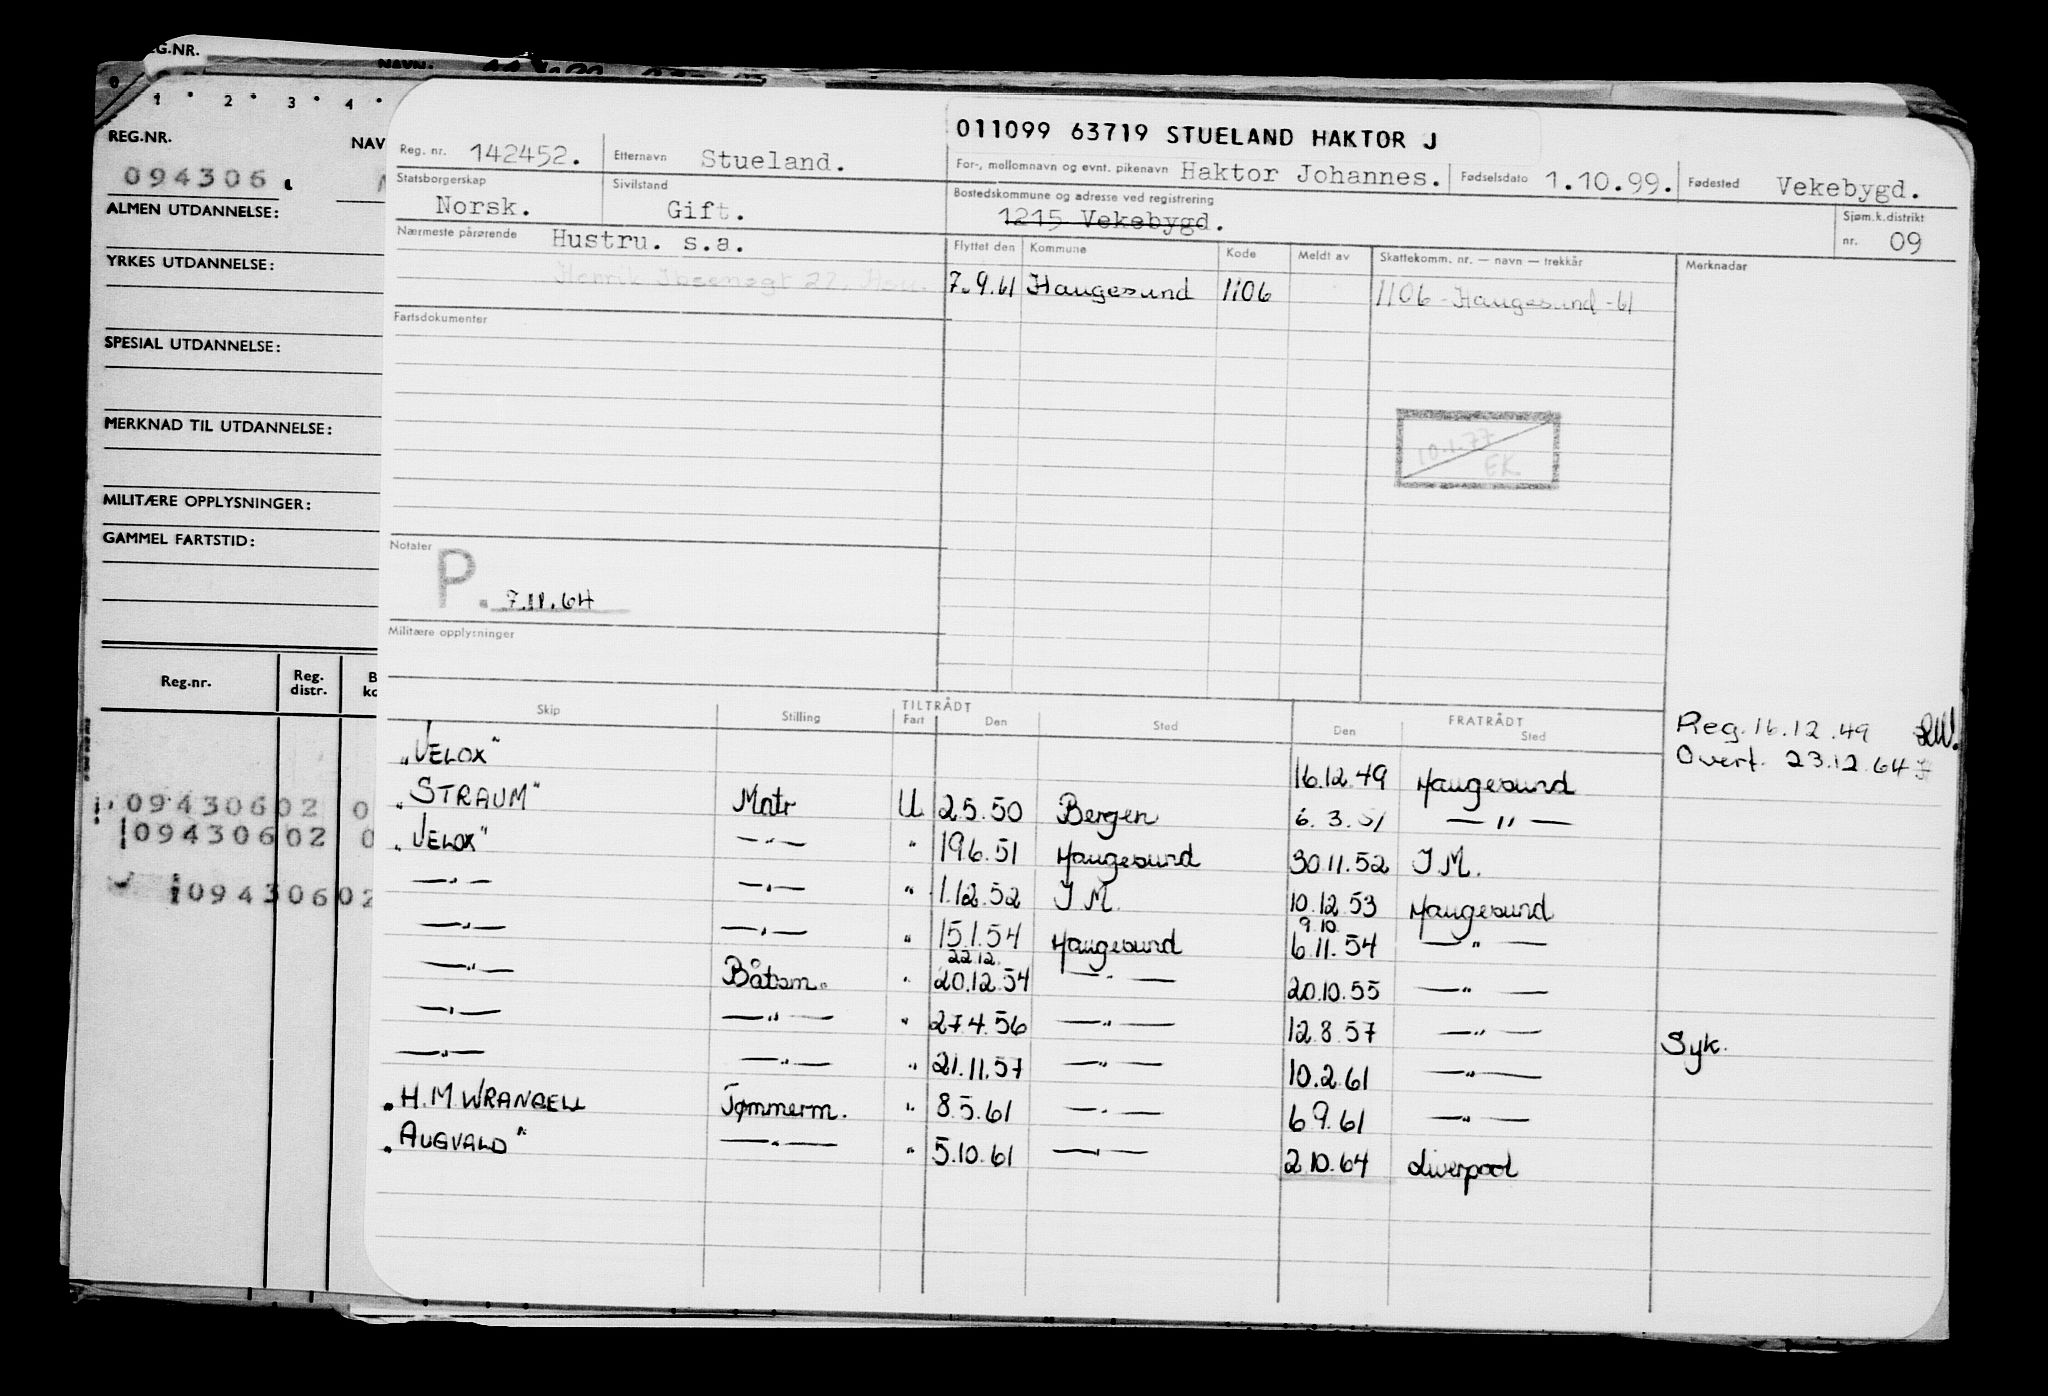 REG.NR.
NAVN:
0 1 2 3 4
REG.NR.
NAV
094306
ALMEN UTDANNELSE:
YRKES UTDANNELSE:
SPESIAL UTDANNELSE:
MERKNAD TIL UTDANNELSE:
MILITÆRE OPPLYSNINGER:
GAMMEL FARTSTID:
Reg.nr. Reg. distr.
09430602 0
09430602 0
09430602
011099 63719 STUELAND HAKTOR J
Reg. nr. 142452. Etternavn Stueland. For-, mellomnavn og evnt. pikenavn Haktor Johannes. Fødselsdato 1.10.99. Fødested Vekebygd.
Statsborgerskap Norsk. Sivilstand Gift. Bostedskommune og adresse ved registrering 1215 Vekebygd. Sjøm.k.distrikt nr. 09
Nærmeste pårørende Hustru. s.a.
Henrik Ibsensgt 22,
Flyttet den Kommune Kode Meldt av Skattekomm. nr. — navn — trekkår Merknader
7.9.61 Haugesund 1106 1106 - Haugesund - 61
Fartsdokumenter
10.1.77
EK
Notater
P. 7.11.64
Militære opplysninger
TILTRÅDT FRATRÅDT
Skip Stilling Fart Den Sted Den Sted
Reg. 16.12.49
Overf. 23.12.64
„VELOX" 16.12.49 Haugesund
„STRAUM" Matr U 2.5.50 Bergen 6.3.51 —"—
„VELOX" —"— " 19.6.51 Haugesund 30.11.52 I M.
—"— —"— " 1.12.52 I M. 10.12.53 Haugesund
9.10.
—"— —"— " 15.1.54 Haugesund 6.11.54 —"—
22.12.
—"— Båtsm. " 20.12.54 —"— 20.10.55 —"—
—"— —"— " 27.4.56 —"— 12.8.57 —"— Syk.
—"— —"— " 21.11.57 —"— 10.2.61 —"—
„H.M. WRANGELL Tømmerm. " 8.5.61 —"— 6.9.61 —"—
„AUGVALD" —"— " 5.10.61 —"— 2.10.64 Liverpool